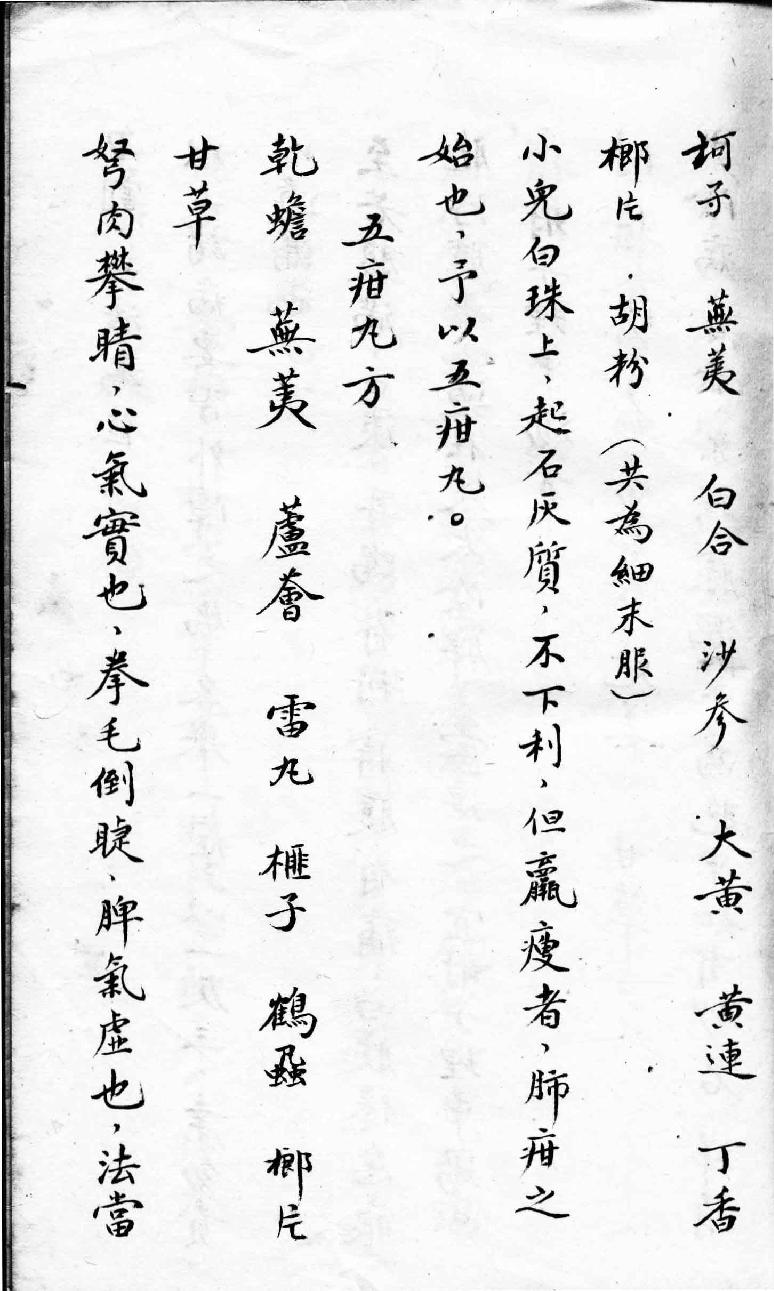 柯子 蕪荑 白合 沙參 大黃 黃連 丁香
榔片 胡粉 (共為細末服)
小兒白珠上、起石灰質,不下利,但羸瘦者,肺疳之
始也,予以五疳丸。
五疳丸方
乾蟾 蕪荑 蘆薈 雷丸 榧子 鶴蝨 榔片
甘草
弩肉攀睛,心氣實也,拳毛倒睫,脾氣虛也,法當